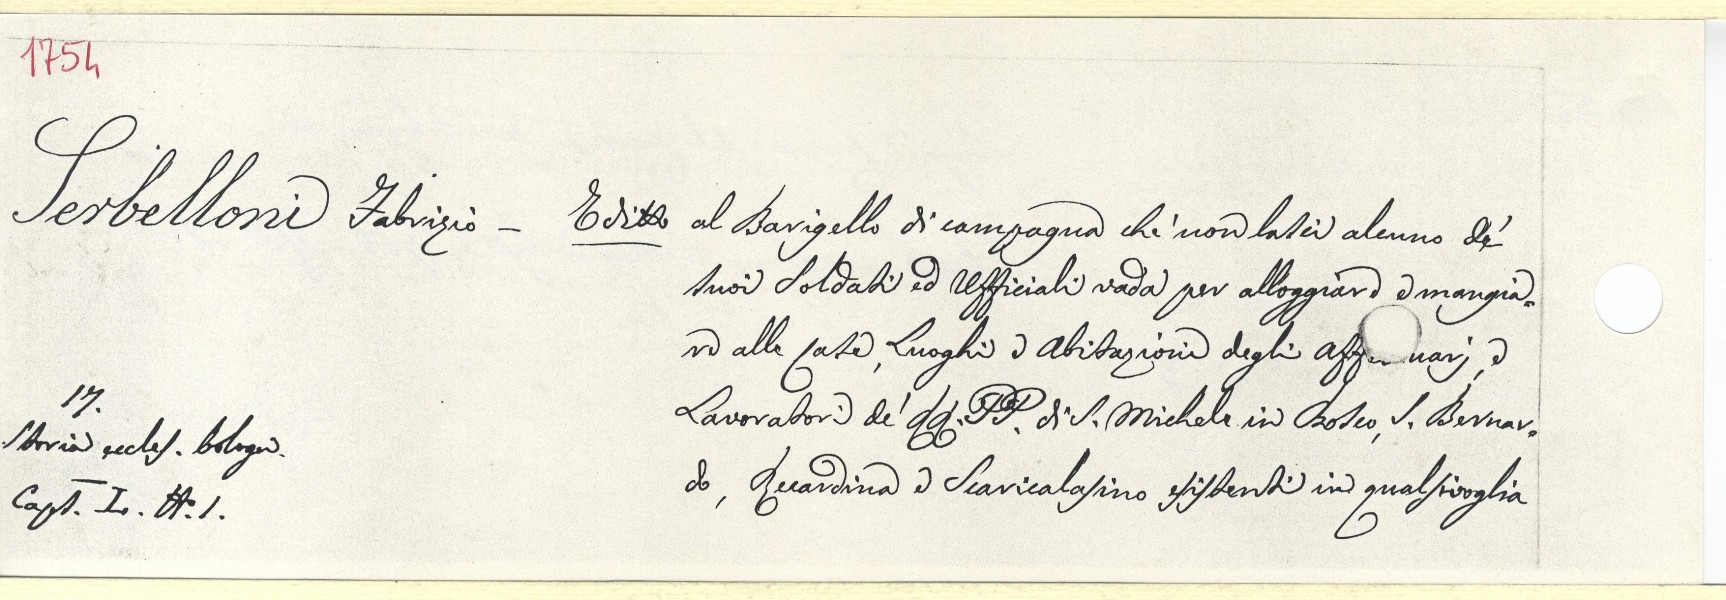 1754
Serbelloni Fabrizio – Editto al Barigello di campagna che non lasci alcuno de'
suoi Soldati ed Ufficiali vada per alloggiare e mangia-
re alle case, Luoghi e Abitazioni degli Aff uarj, e
Lavoratori de' RR. PP. di S. Michele in Bosco, S. Bernar-
do, Ricardina e Scaricalasino esistenti in qualsivoglia
17.
Storia eccles. bologn.
Capt. I. N. 1.